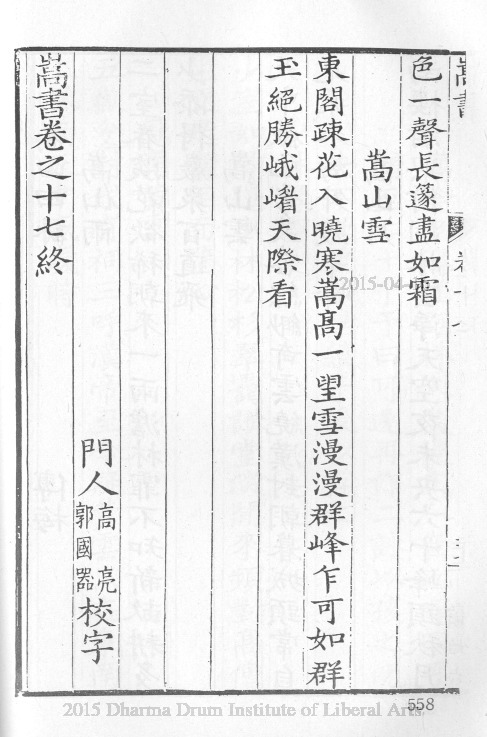 嵩書
色一聲長篴盡如霜
嵩山雪
東閣疎花入曉寒嵩髙一朢雪漫漫群峰乍可如群
玉絕勝峨嵋天際看
門人高亮郭國器校字
嵩書卷之十七終
2015-04
558
2015 Dharma Drum Institute of Liberal Arts